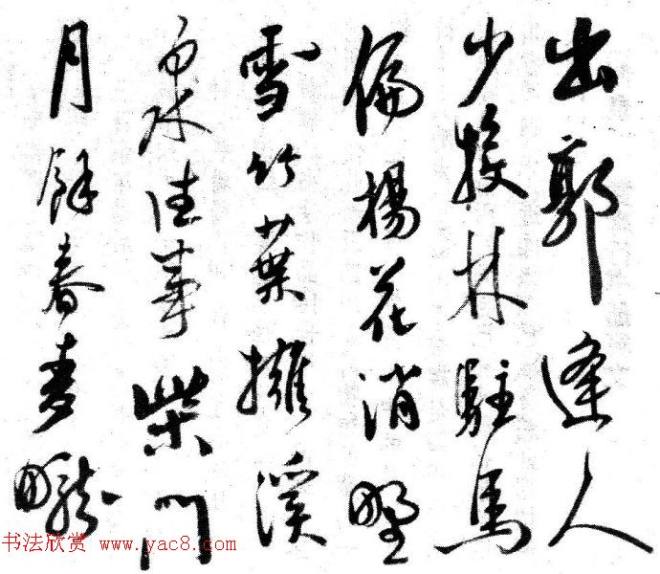 出郭逢人
少投林駐馬
偏楊花消野
雪竹葉擁溪
泉佳事柴門
月餘春麥
书法欣赏 www.yac8.com